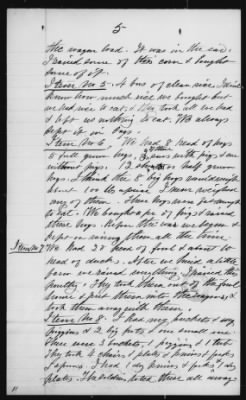 5
the wagon load. It was in the ear.
I raised some of this corn & bought
some of it.
Item No 5. 4 bus of clean rice. I don't
know how much rice we bought but
we had rice to eat, & they took all we had
& left us nothing to eat. We always
kept it in bags.
Item No 6. We had 8 head of hogs
5 full grown hogs, 2 sows with pigs & one
without pigs. 
hogs. I think the 8 big hogs would weigh
about 100 lbs apiece. I never weighed
any of them. These hogs were fat enough
to eat. We bought a pr of pigs & raised
these hogs. Before the war we began &
kept on raising them all the time.
Item No 7 We had 27 head of fowl & about 10
head of ducks. After we had a little
farm we raised everything. I raised this
poultry. They took them out of the fowl
house & put them into the wagons, &
took them away with them.
Item No 8. I had my buckets & my
piggins & 2 big pots & one small one.
There were 3 buckets, 1 piggin & 1 tub.
They took 4 chairs & plates & knives & forks
& spoons. I had 1 doz knives & forks & 1 doz
plates. The soldiers took these all away